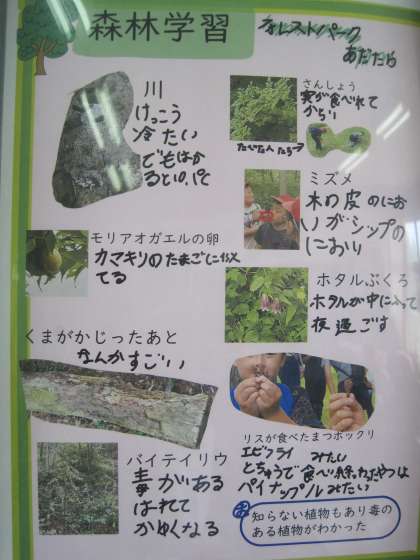 森林学習
フォレストパーク
あだたら
川
けっこう
冷たい
でもはか
ると10.1℃
さんしょう
実が食べれて
からい
たべた人たち→
ミズメ
木の皮のにお
いがシップの
におい
モリアオガエルの卵
カマキリのたまごに似
てる
ホタルぶくろ
ホタルが中に入って
夜過ごす
くまがかじったあと
なんかすごいい
リスが食べたまつボックリ
エビフライみたい
とちゅうで食べ終わったやつは
パイナップルみたい
バイテイリウ
毒がある
はれて
かゆくなる
知らない植物もあり毒の
ある植物がわかった